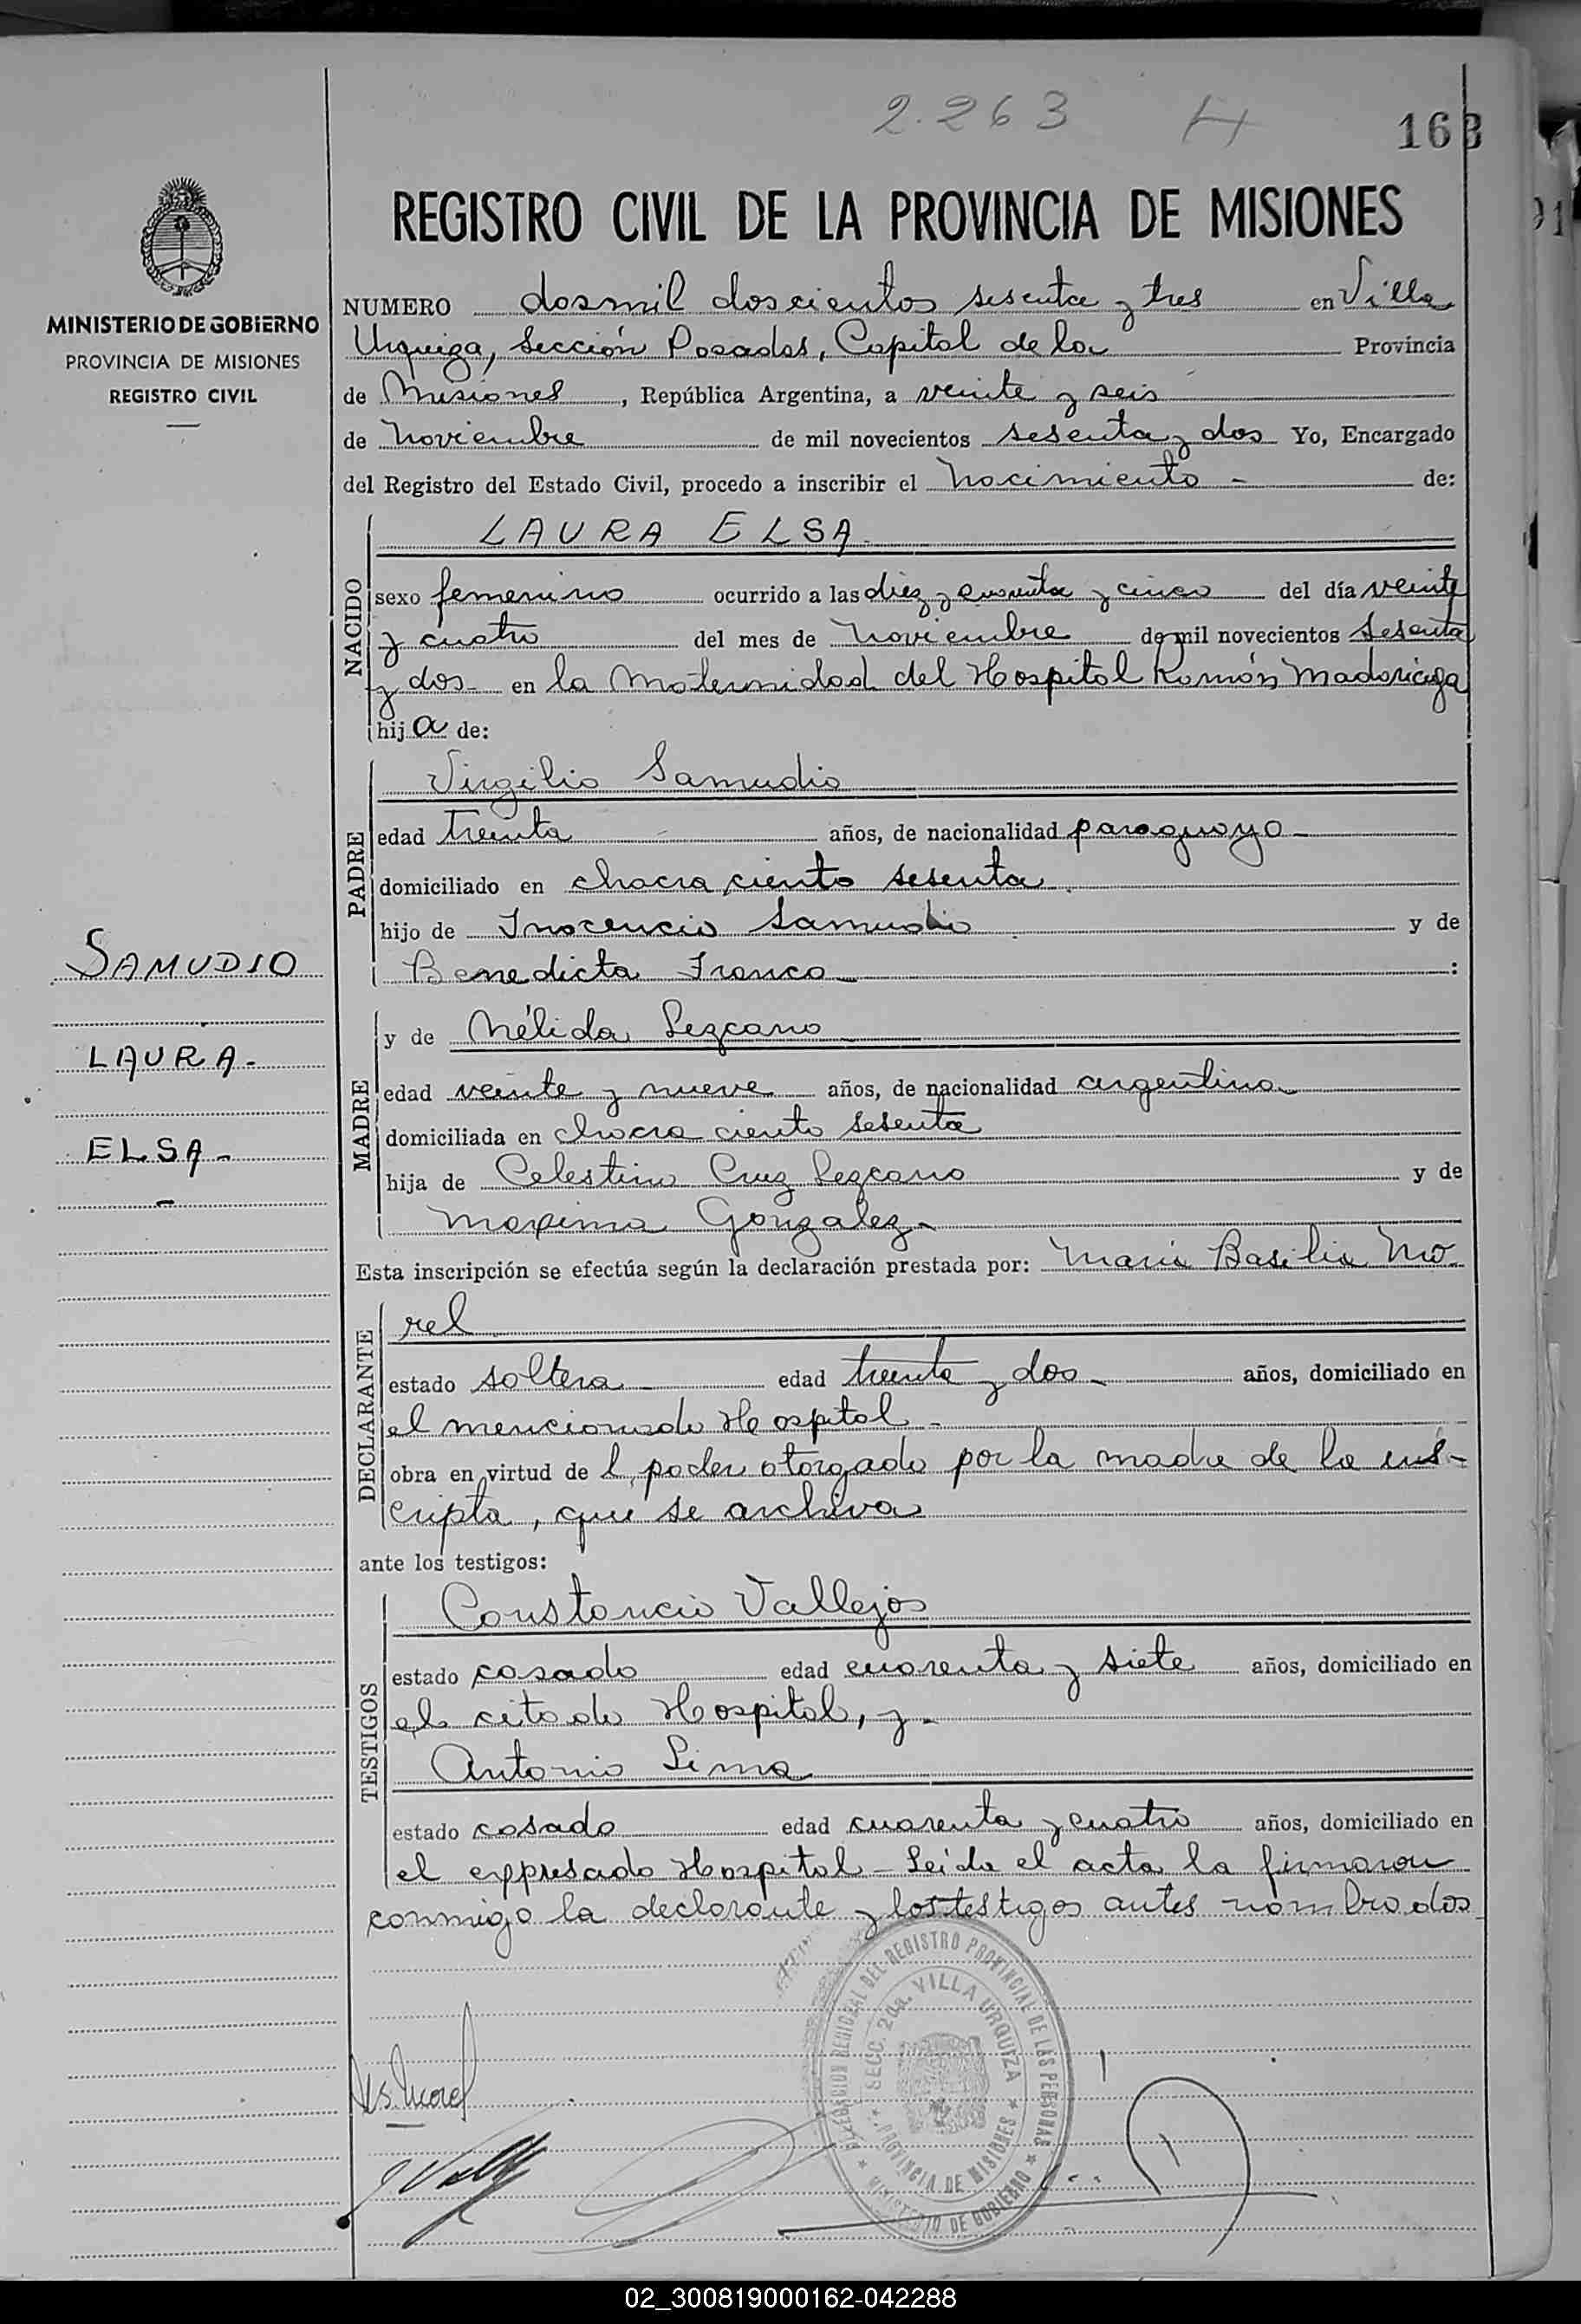 2.263 H
163
REGISTRO CIVIL DE LA PROVINCIA DE MISIONES
MINISTERIO DE GOBIERNO
PROVINCIA DE MISIONES
REGISTRO CIVIL
NUMERO dosmil doscientos sesenta y tres en Villa
Urquiza, Sección Posadas, Capital de la Provincia
de Misiones, República Argentina, a veinte y seis
de Noviembre de mil novecientos sesenta y dos Yo, Encargado
del Registro del Estado Civil, procedo a inscribir el Nacimiento - de:
NACIDO
LAURA ELSA
sexo femenino ocurrido a las diez y cuarenta y cinco del día veinte
y cuatro del mes de Noviembre de mil novecientos sesenta
y dos en la Maternidad del Hospital Ramón Madariaga
hija de:
PADRE
Virgilio Samudio
edad treinta años, de nacionalidad paraguayo
domiciliado en chacra ciento sesenta
hijo de Inocencio Samudio y de
Benedicta Franco :
SAMUDIO
LAURA-
ELSA-
MADRE
y de Nélida Lezcano
edad veinte y nueve años, de nacionalidad argentina
domiciliada en chacra ciento sesenta
hija de Celestino Cruz Lezcano y de
Maxima Gonzalez-
Esta inscripción se efectúa según la declaración prestada por: Maria Basilia Mo-
DECLARANTE
rel
estado soltera edad treinta y dos años, domiciliado en
el mencionado Hospital-
obra en virtud del poder otorgado por la madre de la ins-
cripta, que se archiva
ante los testigos:
TESTIGOS
Constancio Vallejos
estado casado edad cuarenta y siete años, domiciliado en
el citado Hospital, y-
Antonio Lima
estado casado edad cuarenta y cuatro años, domiciliado en
el expresado Hospital - Leida el acta la firmaron
conmigo la declarante y los testigos antes nombrados
DELEGACION REGIONAL DEL REGISTRO PROVINCIAL DE LAS PERSONAS
SECC. 2da. VILLA URQUIZA
PROVINCIA DE MISIONES
MINISTERIO DE GOBIERNO
Morel
02_300819000162-042288